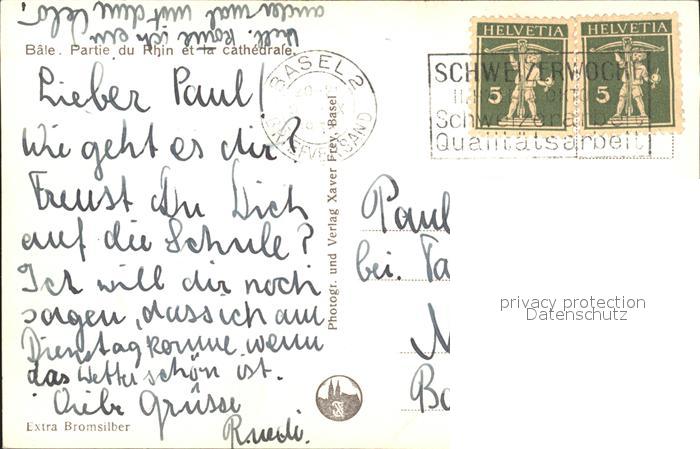 Vell. komme ich ein
andermal mit dem Velo.
Bâle. Partie du Rhin et la cathédrale.
Lieber Paul!
Wie geht es dir?
Freust du Dich
auf die Schule?
Ich will dir noch
sagen, dass ich am
Dienstag komme, wenn
das Wetter schön ist.
Liebe Grüsse
Ruedi.
Extra Bromsilber
Photogr. und Verlag Xaver Frey, Basel
BASEL 2
BRIEFVERSAND
SCHWEIZERWOCHE
Schweizerarbeit
Qualitätsarbeit
HELVETIA
5
HELVETIA
5
Paul
bei.
privacy protection
Datenschutz